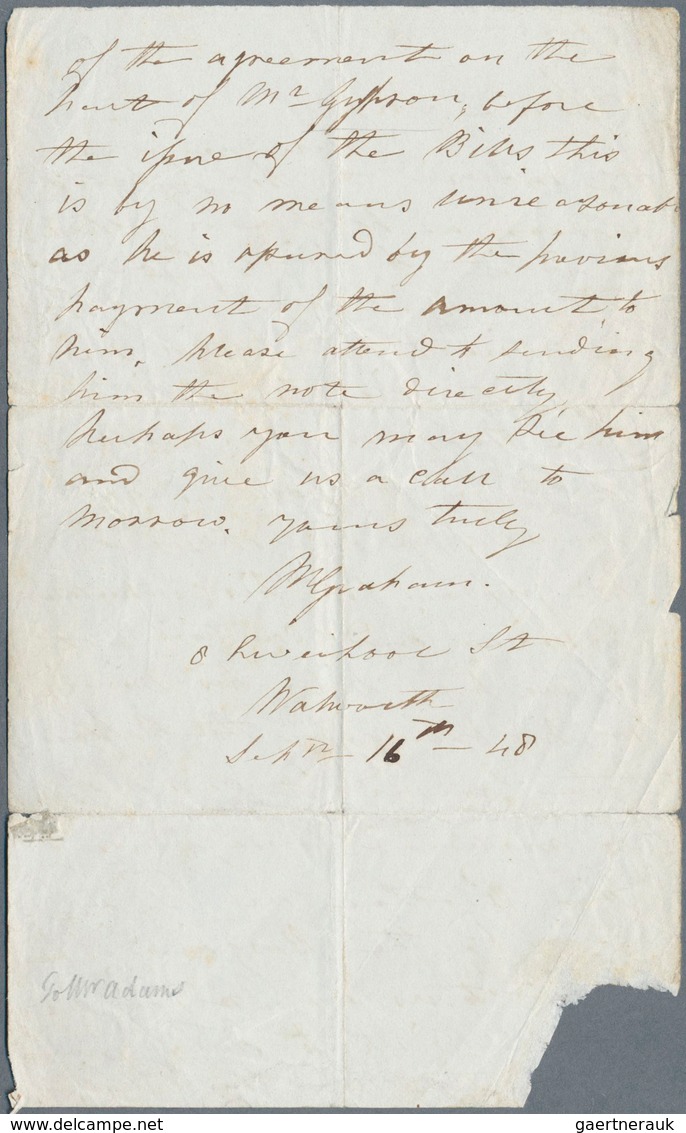 of the agreement on the
part of Mr Gypson, before
the issue of the Bills this
is by no means unreasonab
as he is assured by the previous
payment of the amount to
him, please attend to sending
him the note directly
perhaps you may see him
and give us a call to
morrow. yours truly
M Graham.
8 Liverpool St
Walworth
Sepr 16th – 48
To Mr Adams
gaertnerauk